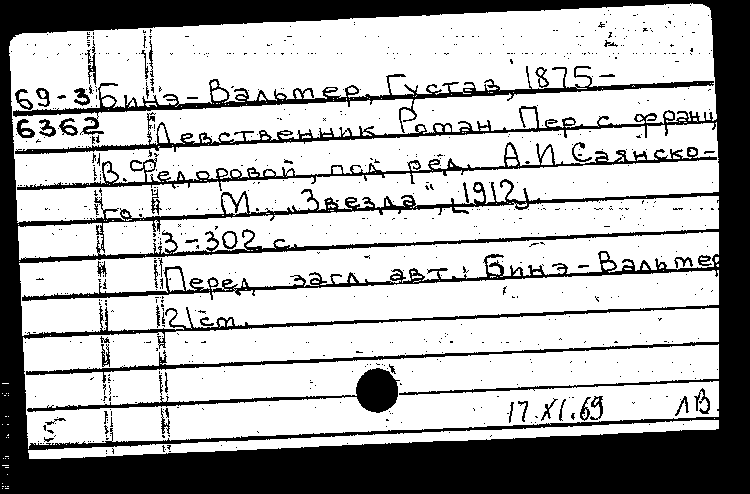 69-3 Бинэ-Вальтер, Густав, 1875-
6362 Девственник Роман. Пер. с франц.
В. Федоровой, под ред. А.И. Саянско-
го. М., „Звезда", [1912].
3-302 с.
Перед загл. авт.: Бинэ-Вальтер
21 см.
17.XI.69 ЛВ